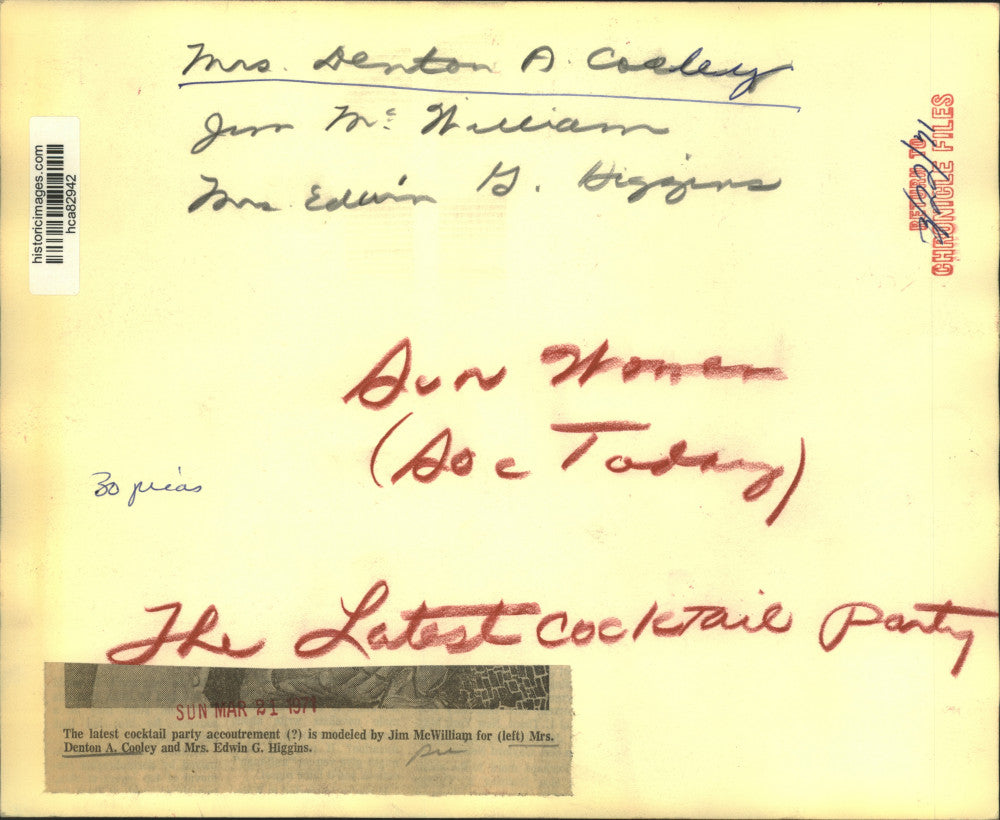 Mrs. Denton A. Cooley
Jim Mc William
Mrs. Edwin G. Higgins
historicimages.com
hca82942
RETURN TO
CHRONICLE FILES
Sun Women
(Soc Today)
30 picas
The Latest Cocktail Party
SUN MAR 21 1971
The latest cocktail party accoutrement (?) is modeled by Jim McWilliam for (left) Mrs.
Denton A. Cooley and Mrs. Edwin G. Higgins.